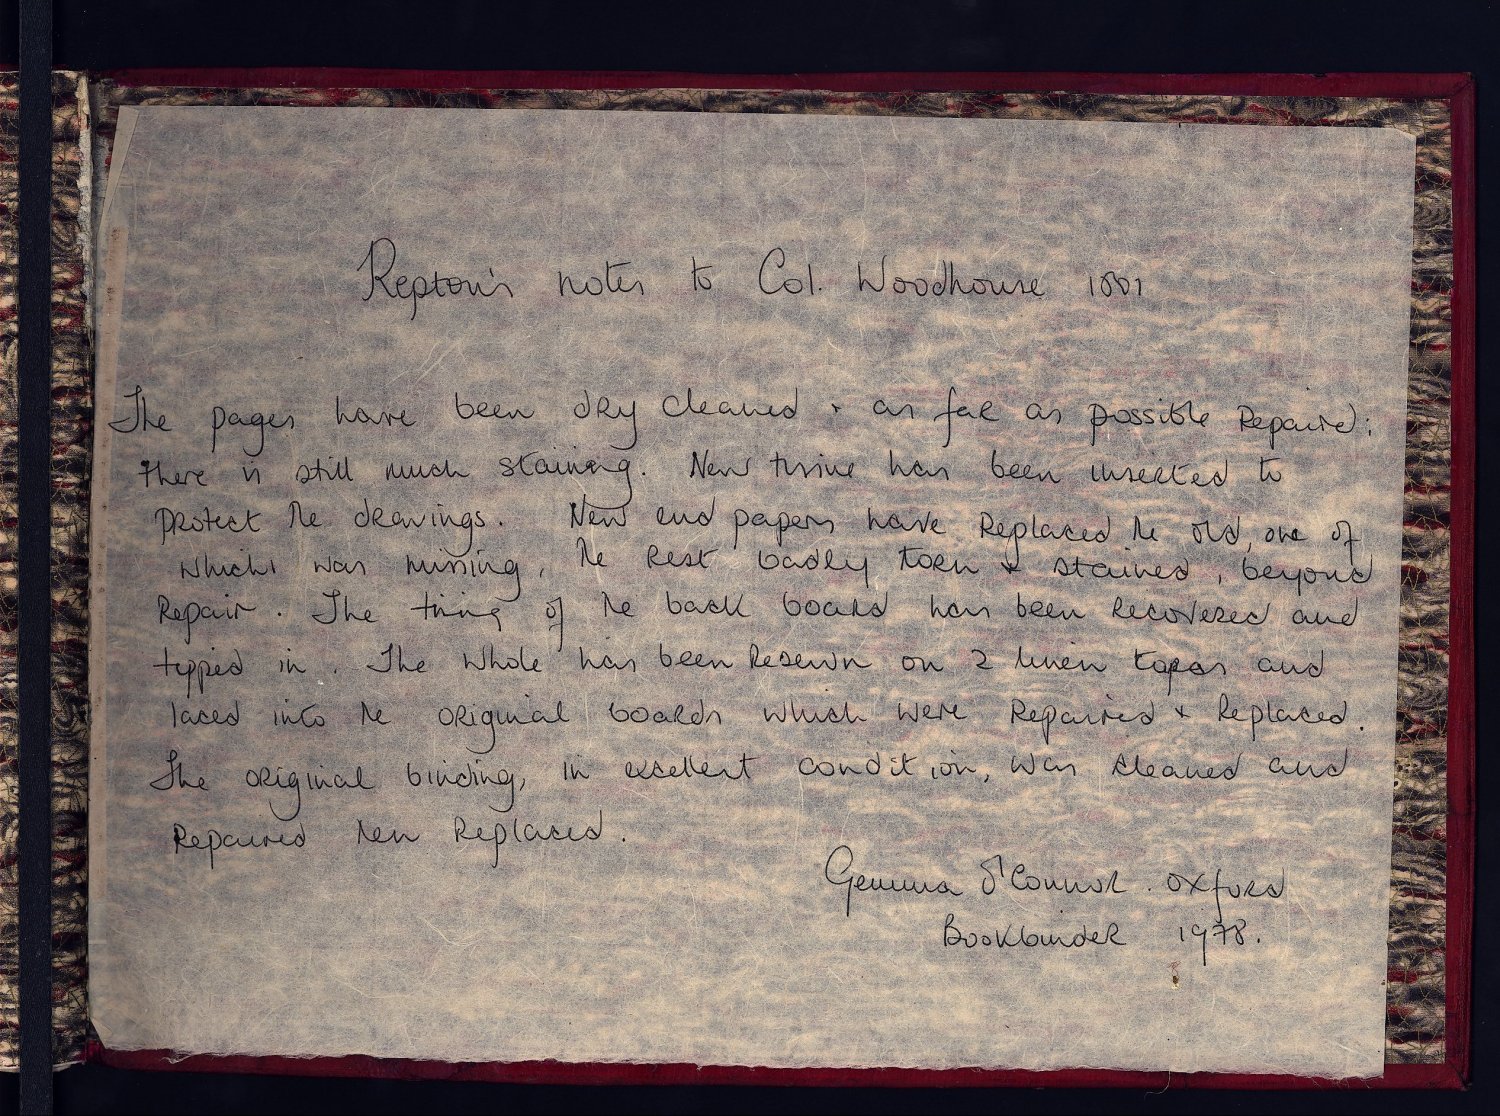 Repton's notes to Col. Woodhouse 1801
The pages have been dry cleaned + as far as possible repaired;
there is still much staining. New tissue has been inserted to
protect the drawings. New end papers have replaced the old, one of
which was missing, the rest badly torn + stained, beyond
repair. The lining of the back board has been recovered and
tipped in. The whole has been resewn on 2 linen tapes and
laced into the original boards which were repaired + replaced.
The original binding, in excellent condition, was cleaned and
repaired then replaced.
Gemma O'Connor. Oxford
Bookbinder 1978.